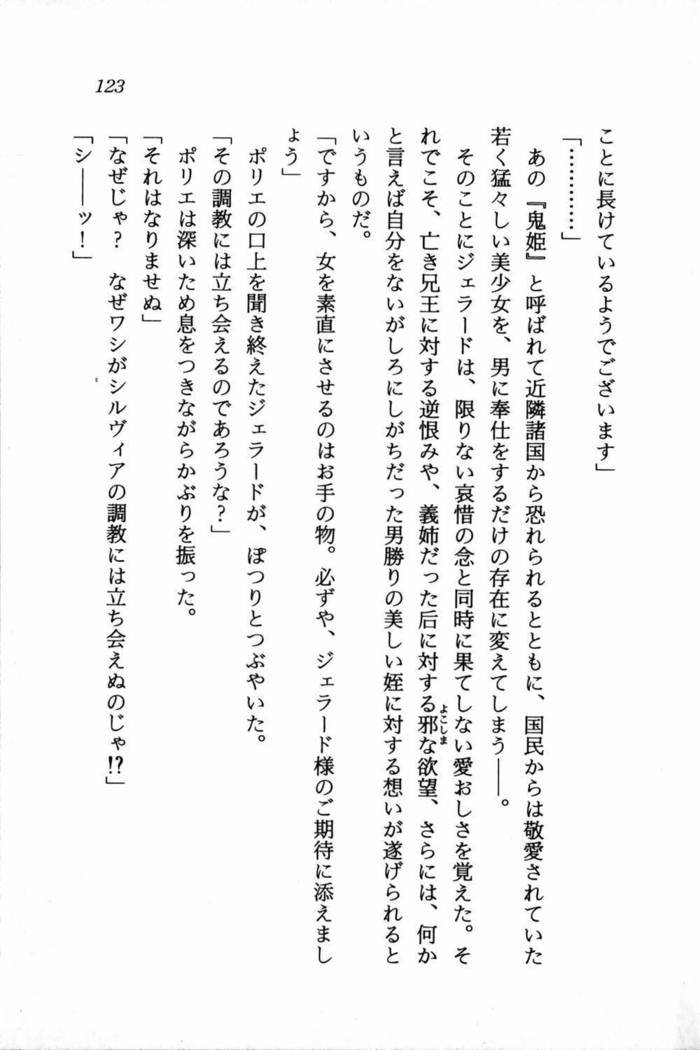 123
ことに長けているようでございます」
「…………」
あの『鬼姫』と呼ばれて近隣諸国から恐れられるとともに、国民からは敬愛されていた
若く猛々しい美少女を、男に奉仕をするだけの存在に変えてしまう――。
そのことにジェラードは、限りない哀惜の念と同時に果てしない愛おしさを覚えた。そ
れでこそ、亡き兄王に対する逆恨みや、義姉だった后に対する邪な欲望、さらには、何か
よこしま
と言えば自分をないがしろにしがちだった男勝りの美しい姪に対する想いが遂げられると
いうものだ。
「ですから、女を素直にさせるのはお手の物。必ずや、ジェラード様のご期待に添えまし
ょう」
ポリエの口上を聞き終えたジェラードが、ぽつりとつぶやいた。
「その調教には立ち会えるのであろうな?」
ポリエは深いため息をつきながらかぶりを振った。
「それはなりませぬ」
「なぜじゃ? なぜワシがシルヴィアの調教には立ち会えぬのじゃ!?」
「シ――ッ!」